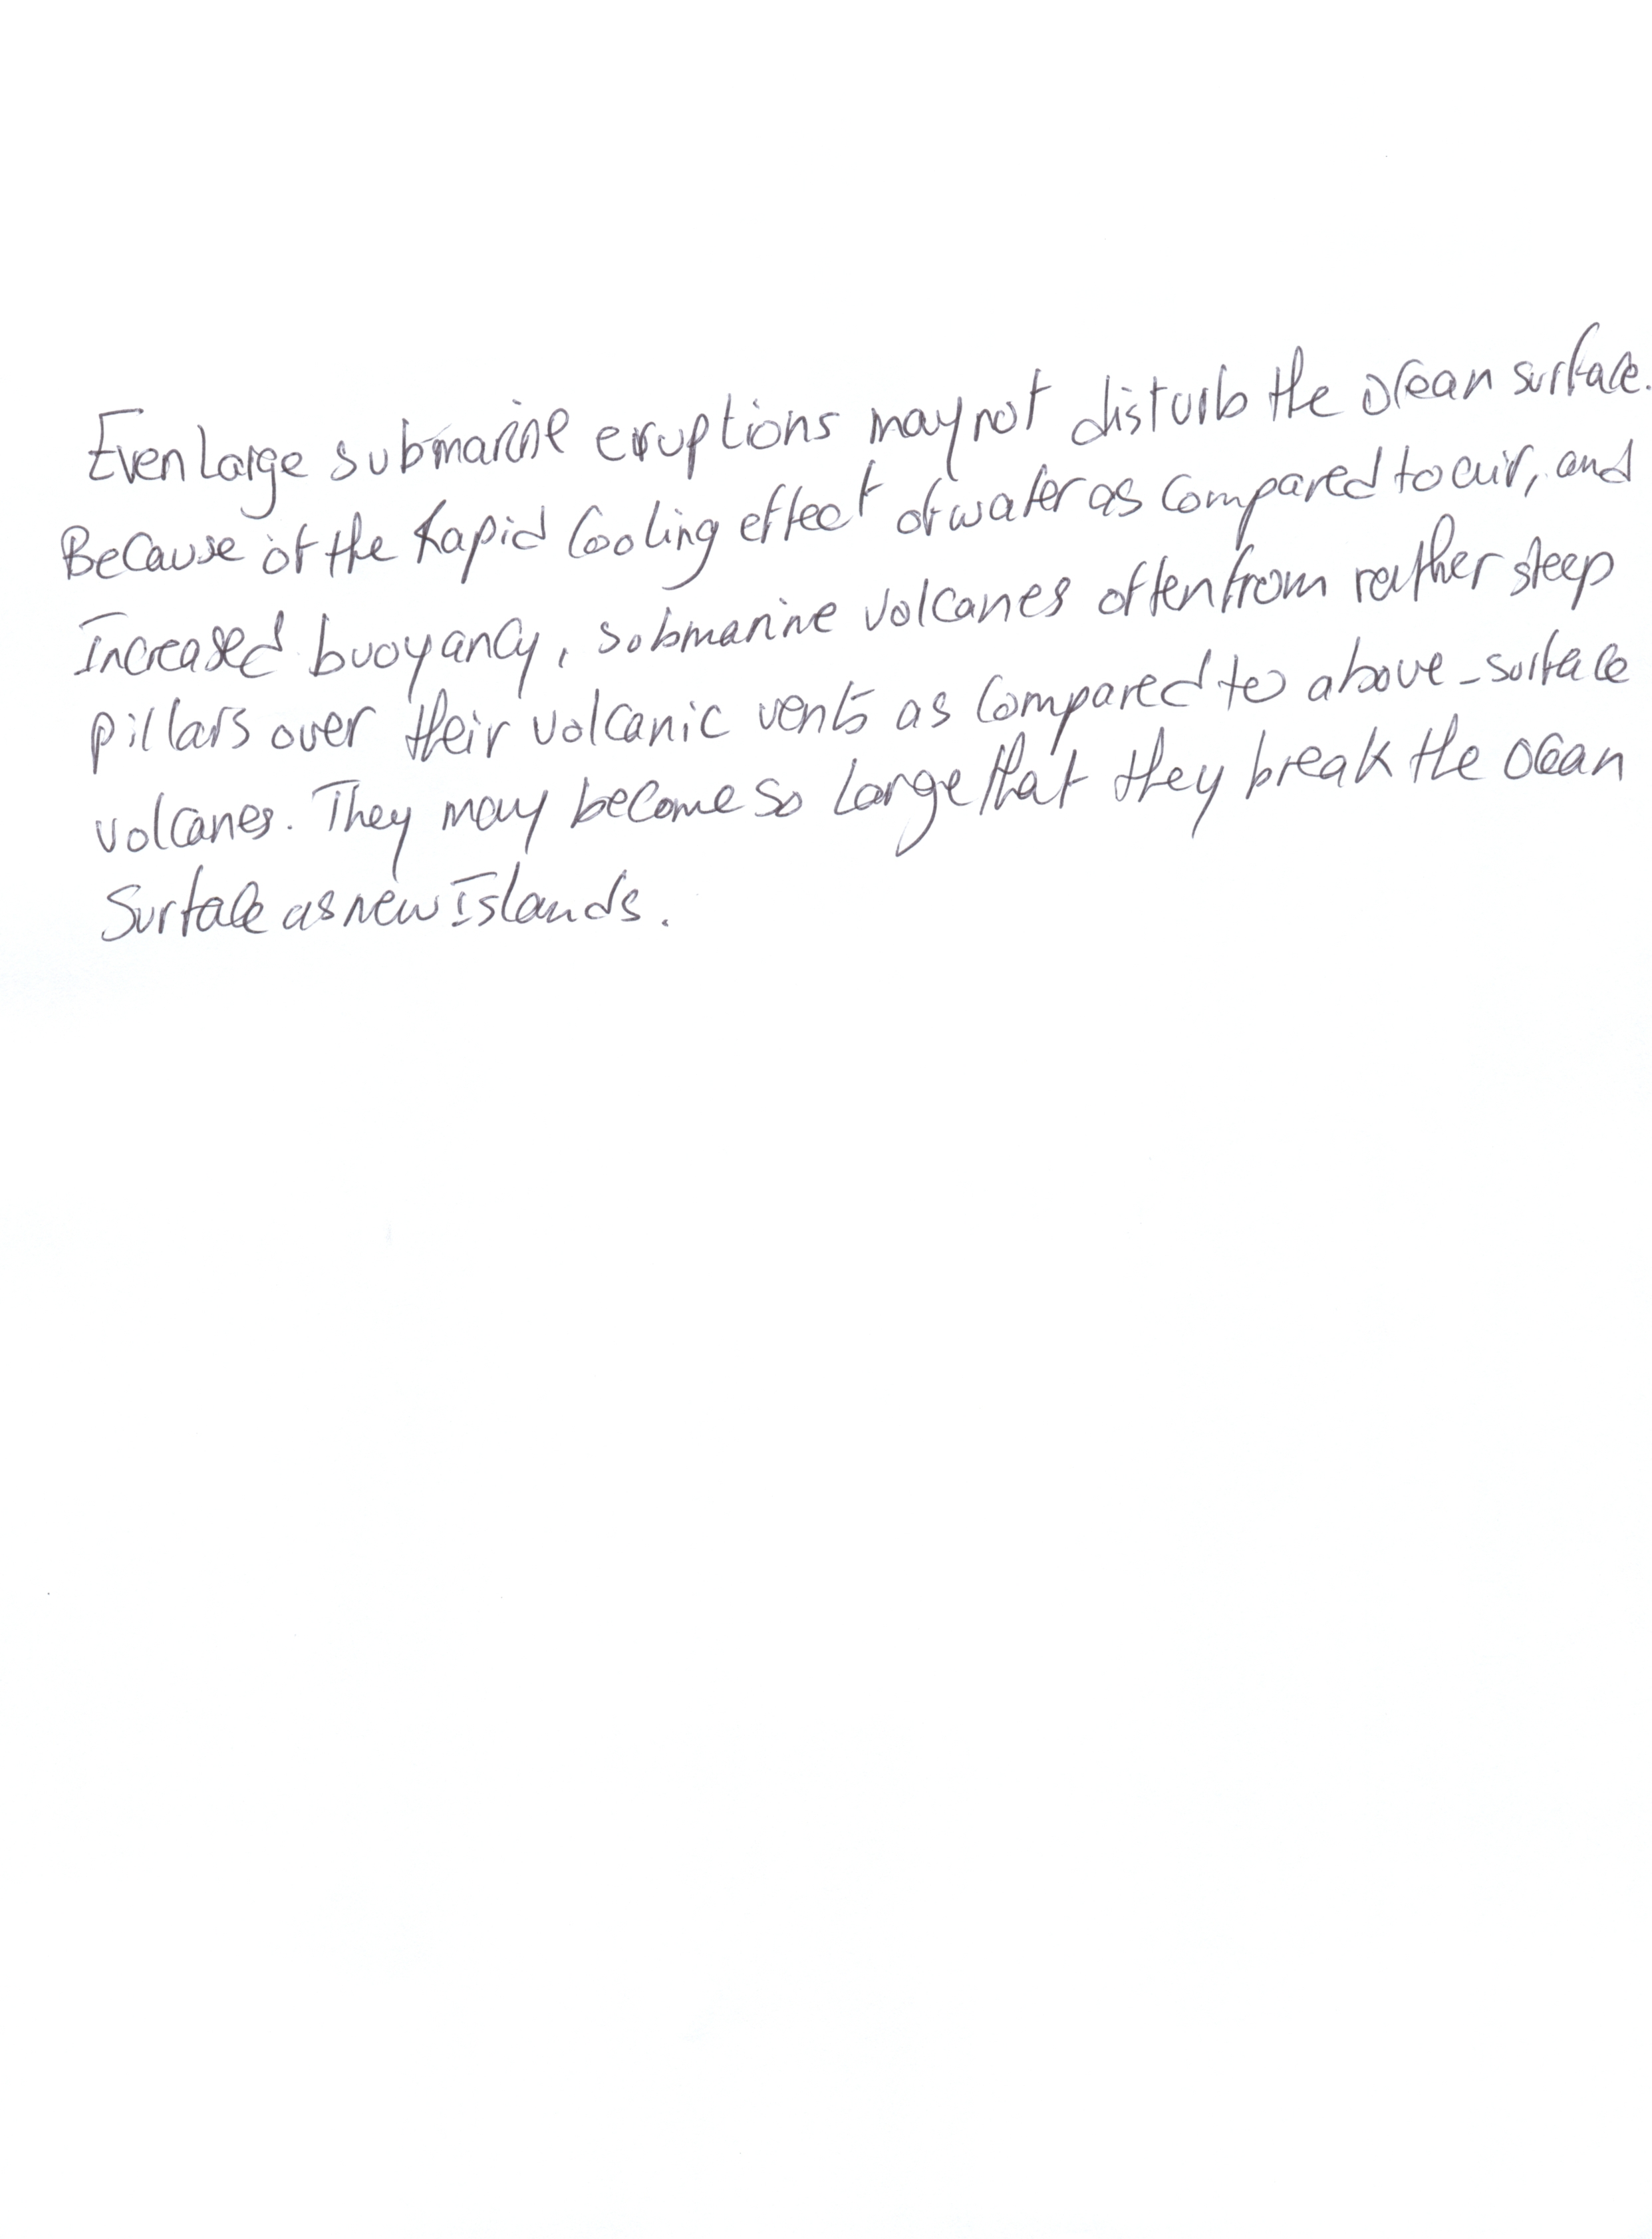 Even Large submarine eruptions may not disturb the ocean surface.
Because of the Rapid Cooling effect of water as compared to air, and
Increased buoyancy, submarine volcanes often from rather steep
pillars over their volcanic vents as compared to above-surface
volcanes. They may become so large that they break the ocean
Surface as new Islands.